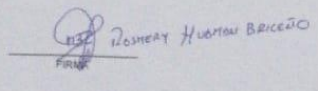 Rosmery Huaman Briceño
FIRMA